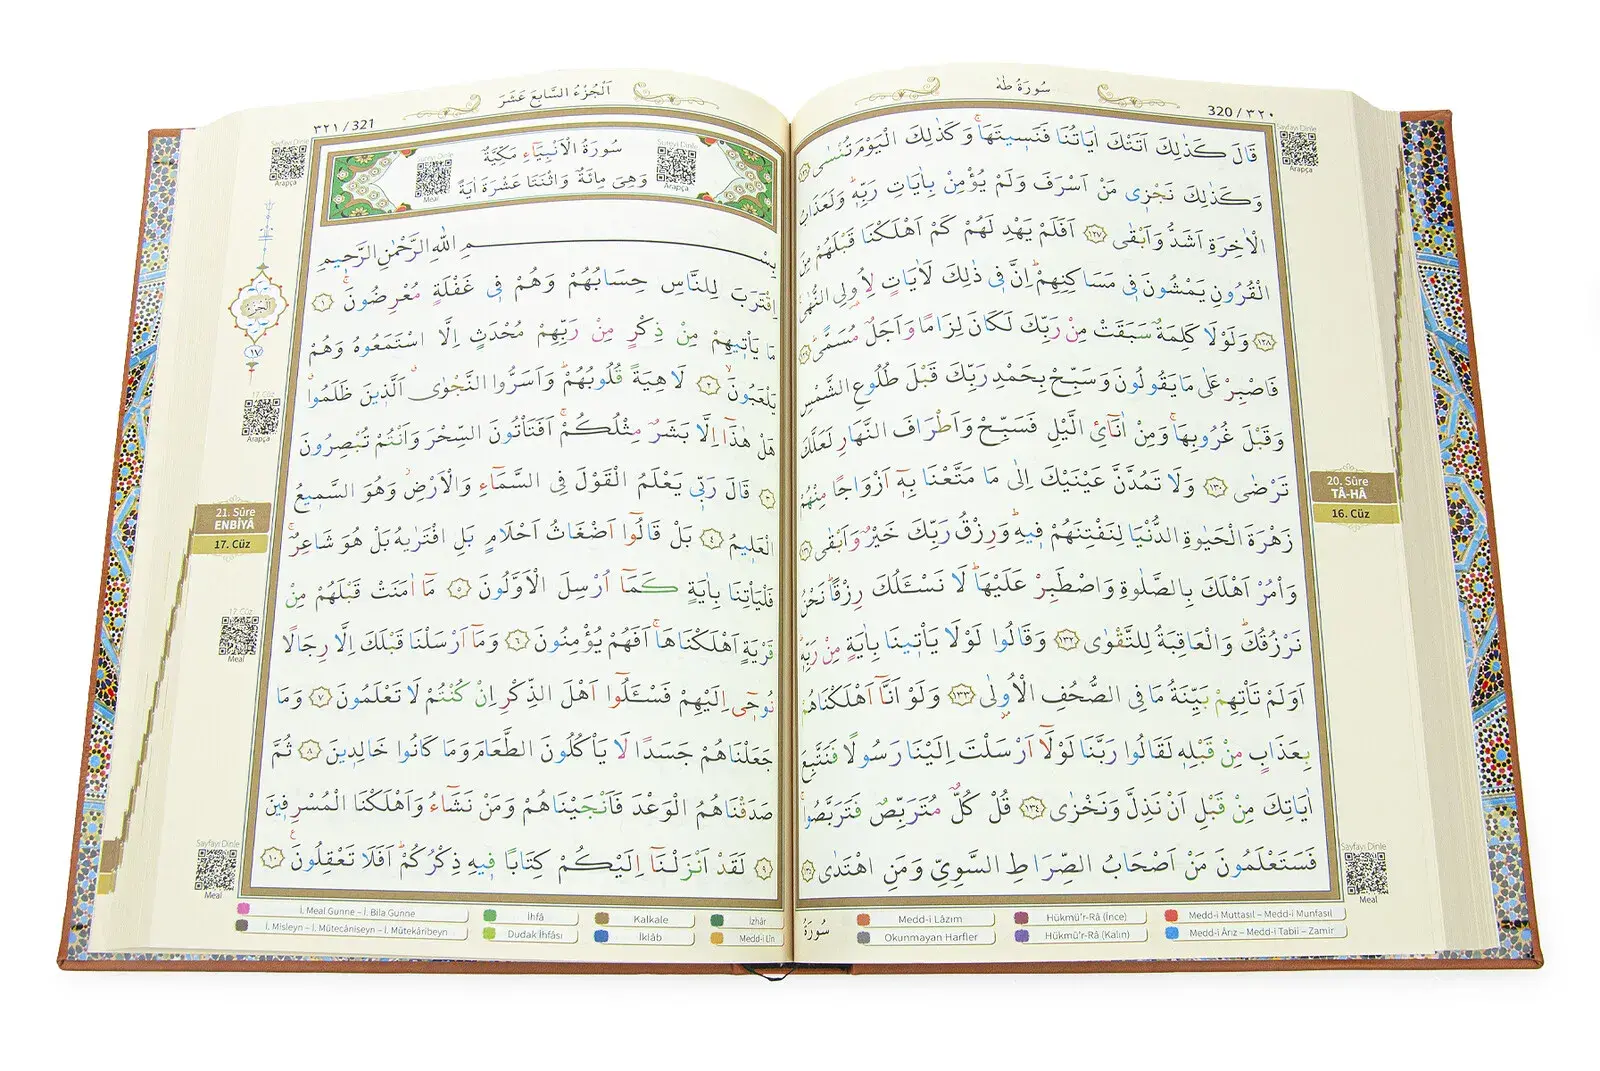 سُورَةُ طٰهٰ
320 / ٣٢٠
Sayfayı Dinle
Arapça
قَالَ كَذٰلِكَ اَتَتْكَ اٰيَاتُنَا فَنَسٖيتَهَاۚ وَكَذٰلِكَ الْيَوْمَ تُنْسٰى ﴿١٢٦﴾
وَكَذٰلِكَ نَجْزٖى مَنْ اَسْرَفَ وَلَمْ يُؤْمِنْ بِاٰيَاتِ رَبِّهٖؕ وَلَعَذَابُ
الْاٰخِرَةِ اَشَدُّ وَاَبْقٰى ﴿١٢٧﴾ اَفَلَمْ يَهْدِ لَهُمْ كَمْ اَهْلَكْنَا قَبْلَهُمْ مِنَ
الْقُرُونِ يَمْشُونَ فٖى مَسَاكِنِهِمْؕ اِنَّ فٖى ذٰلِكَ لَاٰيَاتٍ لِاُو۬لِى النُّهٰى
﴿١٢٨﴾ وَلَوْلَا كَلِمَةٌ سَبَقَتْ مِنْ رَبِّكَ لَكَانَ لِزَامًا وَاَجَلٌ مُسَمًّىؕ ﴿١٢٩﴾
فَاصْبِرْ عَلٰى مَا يَقُولُونَ وَسَبِّحْ بِحَمْدِ رَبِّكَ قَبْلَ طُلُوعِ الشَّمْسِ
وَقَبْلَ غُرُوبِهَاۚ وَمِنْ اٰنَآئِ الَّيْلِ فَسَبِّحْ وَاَطْرَافَ النَّهَارِ لَعَلَّكَ
تَرْضٰى ﴿١٣٠﴾ وَلَا تَمُدَّنَّ عَيْنَيْكَ اِلٰى مَا مَتَّعْنَا بِهٖٓ اَزْوَاجًا مِنْهُمْ
زَهْرَةَ الْحَيٰوةِ الدُّنْيَا لِنَفْتِنَهُمْ فٖيهِؕ وَرِزْقُ رَبِّكَ خَيْرٌ وَاَبْقٰى ﴿١٣١﴾
وَاْمُرْ اَهْلَكَ بِالصَّلٰوةِ وَاصْطَبِرْ عَلَيْهَاؕ لَا نَسْـَٔلُكَ رِزْقًاؕ نَحْنُ
نَرْزُقُكَؕ وَالْعَاقِبَةُ لِلتَّقْوٰى ﴿١٣٢﴾ وَقَالُوا لَوْلَا يَاْتٖينَا بِاٰيَةٍ مِنْ رَبِّهٖؕ
اَوَلَمْ تَاْتِهِمْ بَيِّنَةُ مَا فِى الصُّحُفِ الْاُو۫لٰى ﴿١٣٣﴾ وَلَوْ اَنَّٓا اَهْلَكْنَاهُمْ
بِعَذَابٍ مِنْ قَبْلِهٖ لَقَالُوا رَبَّنَا لَوْلَٓا اَرْسَلْتَ اِلَيْنَا رَسُولًا فَنَتَّبِعَ
اٰيَاتِكَ مِنْ قَبْلِ اَنْ نَذِلَّ وَنَخْزٰى ﴿١٣٤﴾ قُلْ كُلٌّ مُتَرَبِّصٌ فَتَرَبَّصُواۚ
فَسَتَعْلَمُونَ مَنْ اَصْحَابُ الصِّرَاطِ السَّوِىِّ وَمَنِ اهْتَدٰى ﴿١٣٥﴾
20. Sûre
TÂ-HÂ
16. Cüz
Sayfayı Dinle
Meal
سُورَةُ
Medd-i Lâzım
Okunmayan Harfler
Hükmü'r-Râ (İnce)
Hükmü'r-Râ (Kalın)
Medd-i Muttasıl – Medd-i Munfasıl
Medd-i Ârız – Medd-i Tabii – Zamir
اَلْجُزْءُ السَّابِعَ عَشَرَ
٣٢١ / 321
Sayfayı Dinle
Arapça
سُورَةُ الْاَنْبِيَٓاءِ مَكِّيَّةٌ
وَهِىَ مِائَةٌ وَاثْنَتَا عَشْرَةَ اٰيَةً
Sureyi Dinle
Arapça
Meal
بِسْمِ اللّٰهِ الرَّحْمٰنِ الرَّحٖيمِ
اِقْتَرَبَ لِلنَّاسِ حِسَابُهُمْ وَهُمْ فٖى غَفْلَةٍ مُعْرِضُونَۚ ﴿١﴾
مَا يَاْتٖيهِمْ مِنْ ذِكْرٍ مِنْ رَبِّهِمْ مُحْدَثٍ اِلَّا اسْتَمَعُوهُ وَهُمْ
يَلْعَبُونَۙ ﴿٢﴾ لَاهِيَةً قُلُوبُهُمْؕ وَاَسَرُّوا النَّجْوٰىۗ اَلَّذٖينَ ظَلَمُواۗ
هَلْ هٰذَٓا اِلَّا بَشَرٌ مِثْلُكُمْۚ اَفَتَاْتُونَ السِّحْرَ وَاَنْتُمْ تُبْصِرُونَ
﴿٣﴾ قَالَ رَبّٖى يَعْلَمُ الْقَوْلَ فِى السَّمَٓاءِ وَالْاَرْضِۘ وَهُوَ السَّمٖيعُ
الْعَلٖيمُ ﴿٤﴾ بَلْ قَالُٓوا اَضْغَاثُ اَحْلَامٍ بَلِ افْتَرٰيهُ بَلْ هُوَ شَاعِرٌۚ
فَلْيَاْتِنَا بِاٰيَةٍ كَمَٓا اُرْسِلَ الْاَوَّلُونَ ﴿٥﴾ مَٓا اٰمَنَتْ قَبْلَهُمْ مِنْ
قَرْيَةٍ اَهْلَكْنَاهَاۚ اَفَهُمْ يُؤْمِنُونَ ﴿٦﴾ وَمَٓا اَرْسَلْنَا قَبْلَكَ اِلَّا رِجَالًا
نُوحٖٓى اِلَيْهِمْ فَسْـَٔلُٓوا اَهْلَ الذِّكْرِ اِنْ كُنْتُمْ لَا تَعْلَمُونَ ﴿٧﴾ وَمَا
جَعَلْنَاهُمْ جَسَدًا لَا يَاْكُلُونَ الطَّعَامَ وَمَا كَانُوا خَالِدٖينَ ﴿٨﴾ ثُمَّ
صَدَقْنَاهُمُ الْوَعْدَ فَاَنْجَيْنَاهُمْ وَمَنْ نَشَٓاءُ وَاَهْلَكْنَا الْمُسْرِفٖينَ
﴿٩﴾ لَقَدْ اَنْزَلْنَٓا اِلَيْكُمْ كِتَابًا فٖيهِ ذِكْرُكُمْؕ اَفَلَا تَعْقِلُونَ ﴿١٠﴾
الجزء
١٧
17. Cüz
Arapça
21. Sûre
ENBİYÂ
17. Cüz
17. Cüz
Meal
Sayfayı Dinle
Meal
İ. Meal Gunne – İ. Bila Gunne
İ. Misleyn – İ. Mütecâniseyn – İ. Mütekâribeyn
İhfâ
Dudak İhfâsı
Kalkale
İklâb
İzhâr
Medd-i Lîn